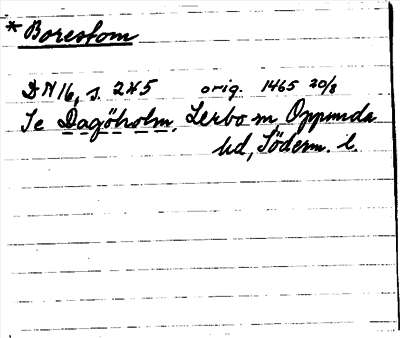 * Borestom
DN 16, s. 245 orig. 1465 20/8
Se Dagöholm, Lerbo sn Oppunda
hd, Söderm. l.